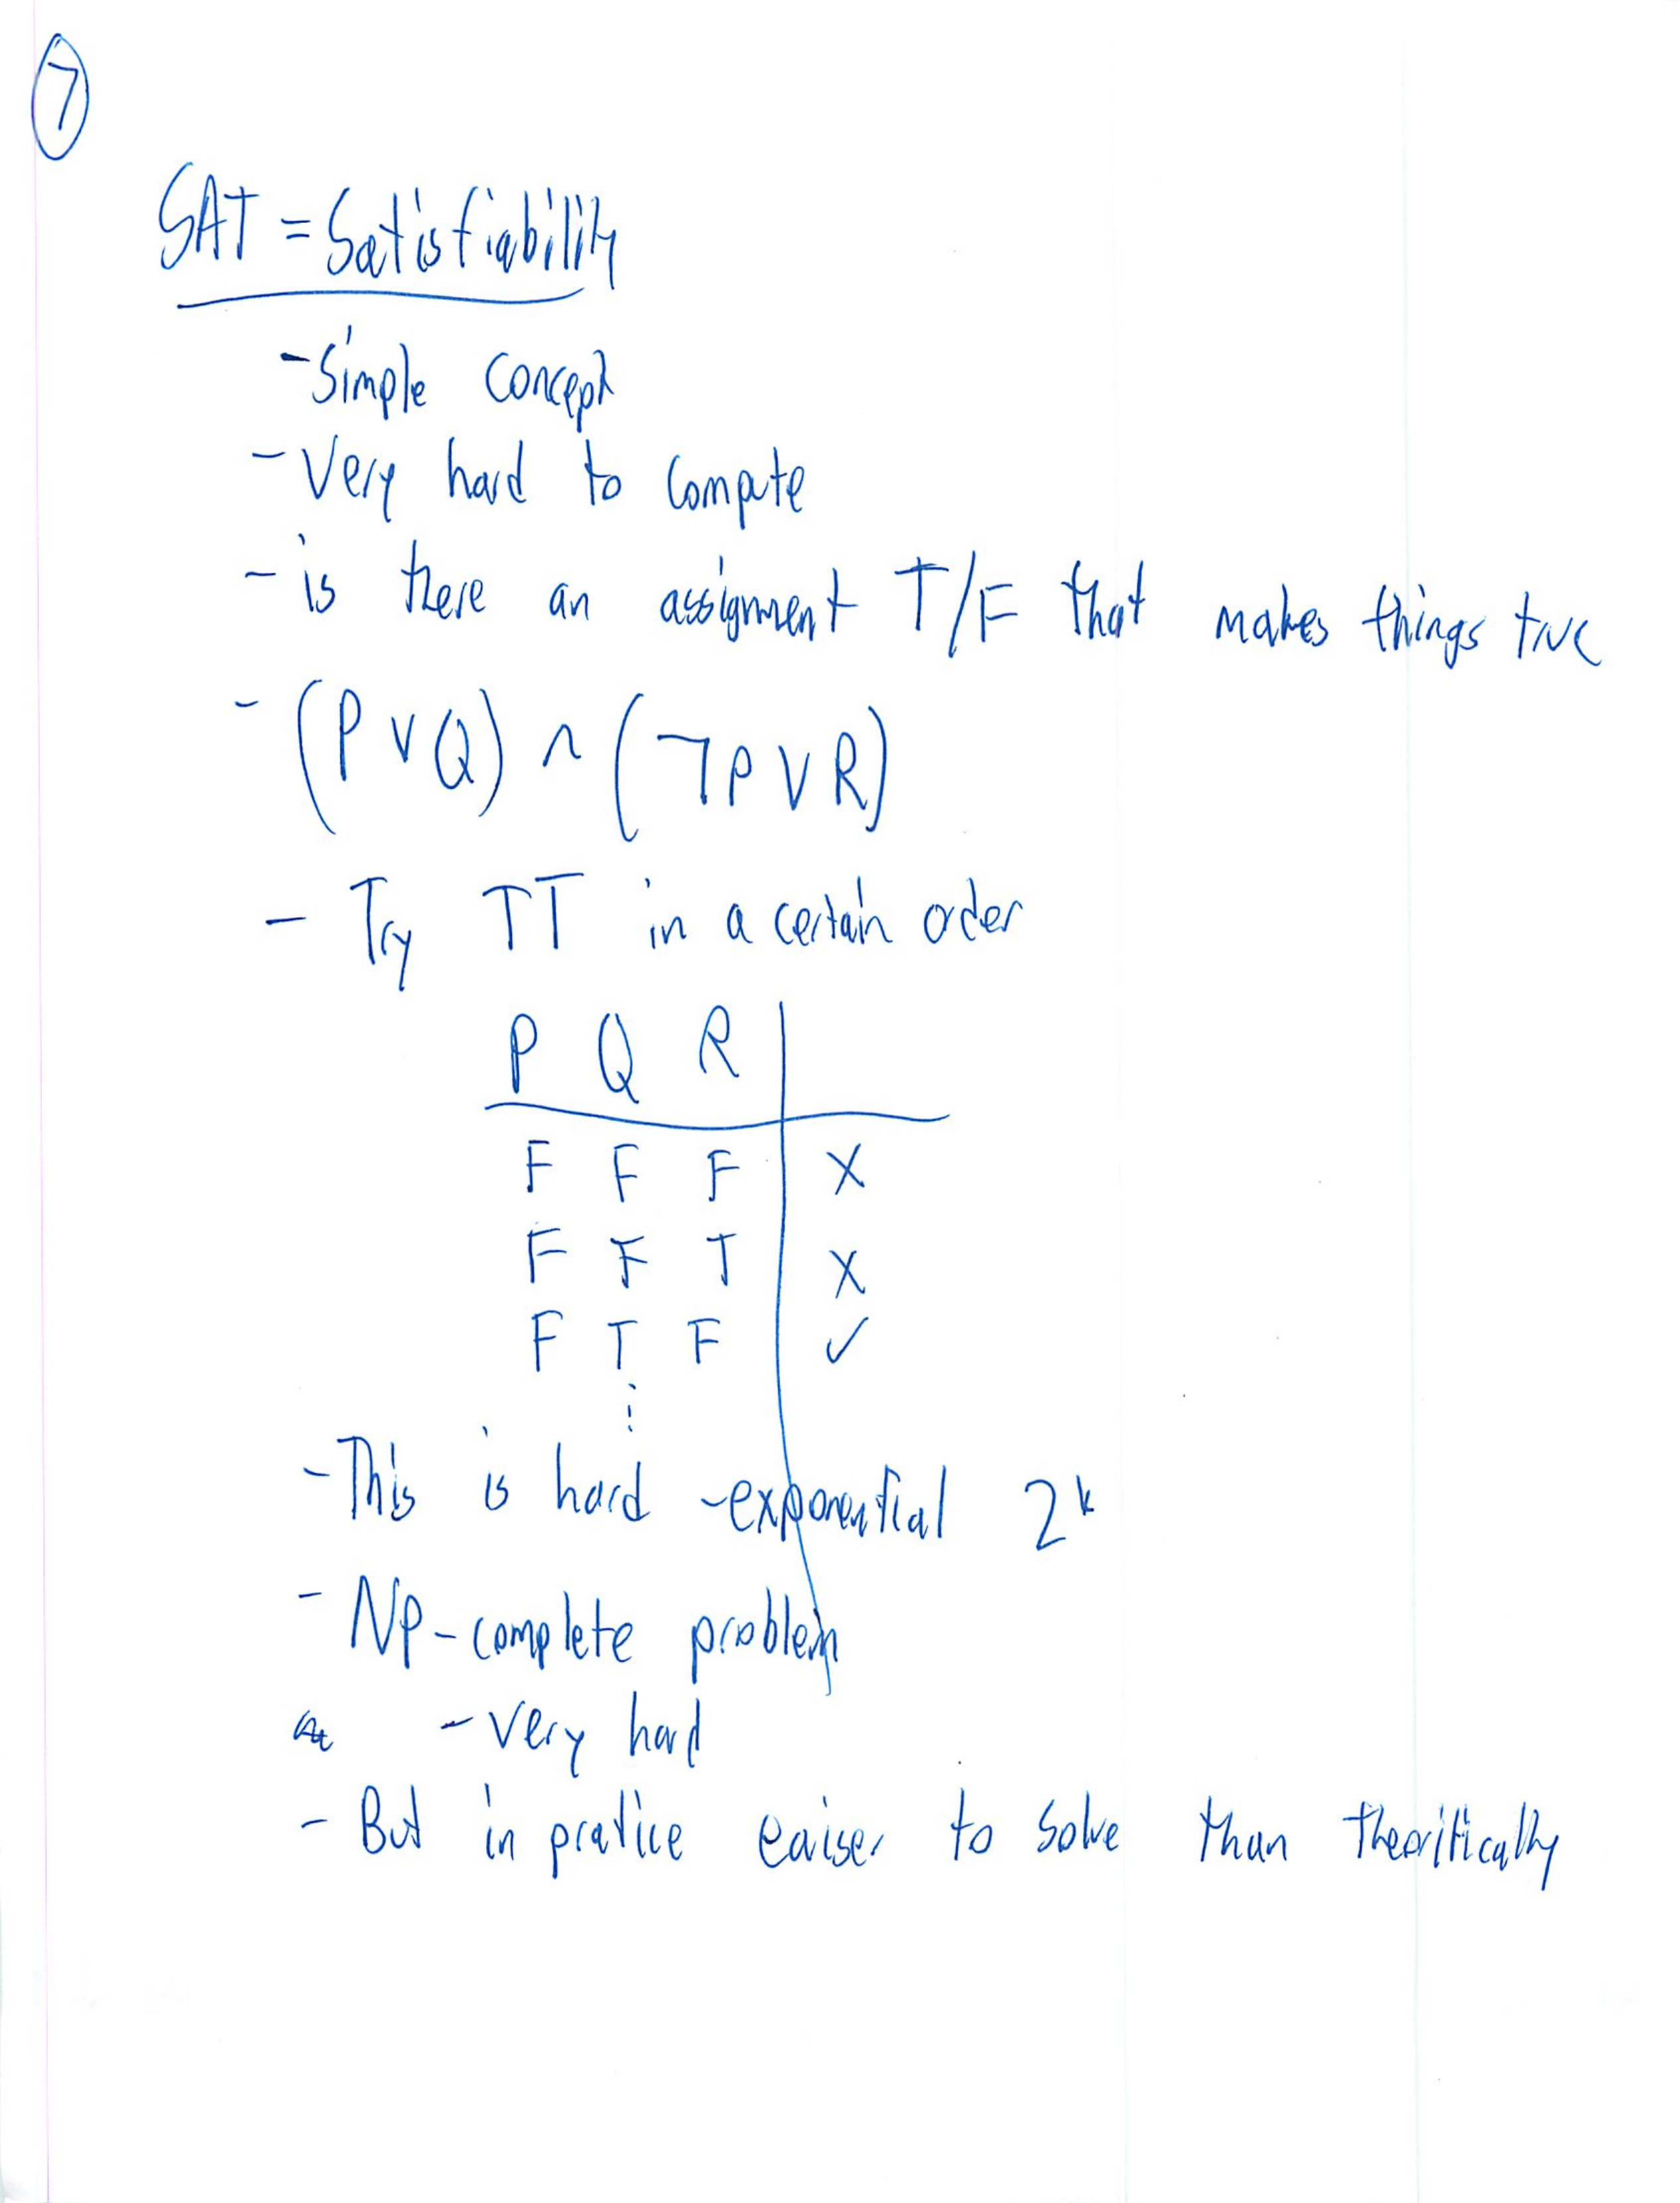 7
SAT = Satisfiability
- Simple concept
- Very hard to compute
- is there an assignment T/F that makes things true
- (P ∨ Q) ∧ (¬P ∨ R)
- Try TT in a certain order
P Q R
F F F X
F F T X
F T F ✓
⋮
- This is hard - exponential 2^k
- NP-complete problem
- very hard
- But in pratice eaiser to solve than theoritically